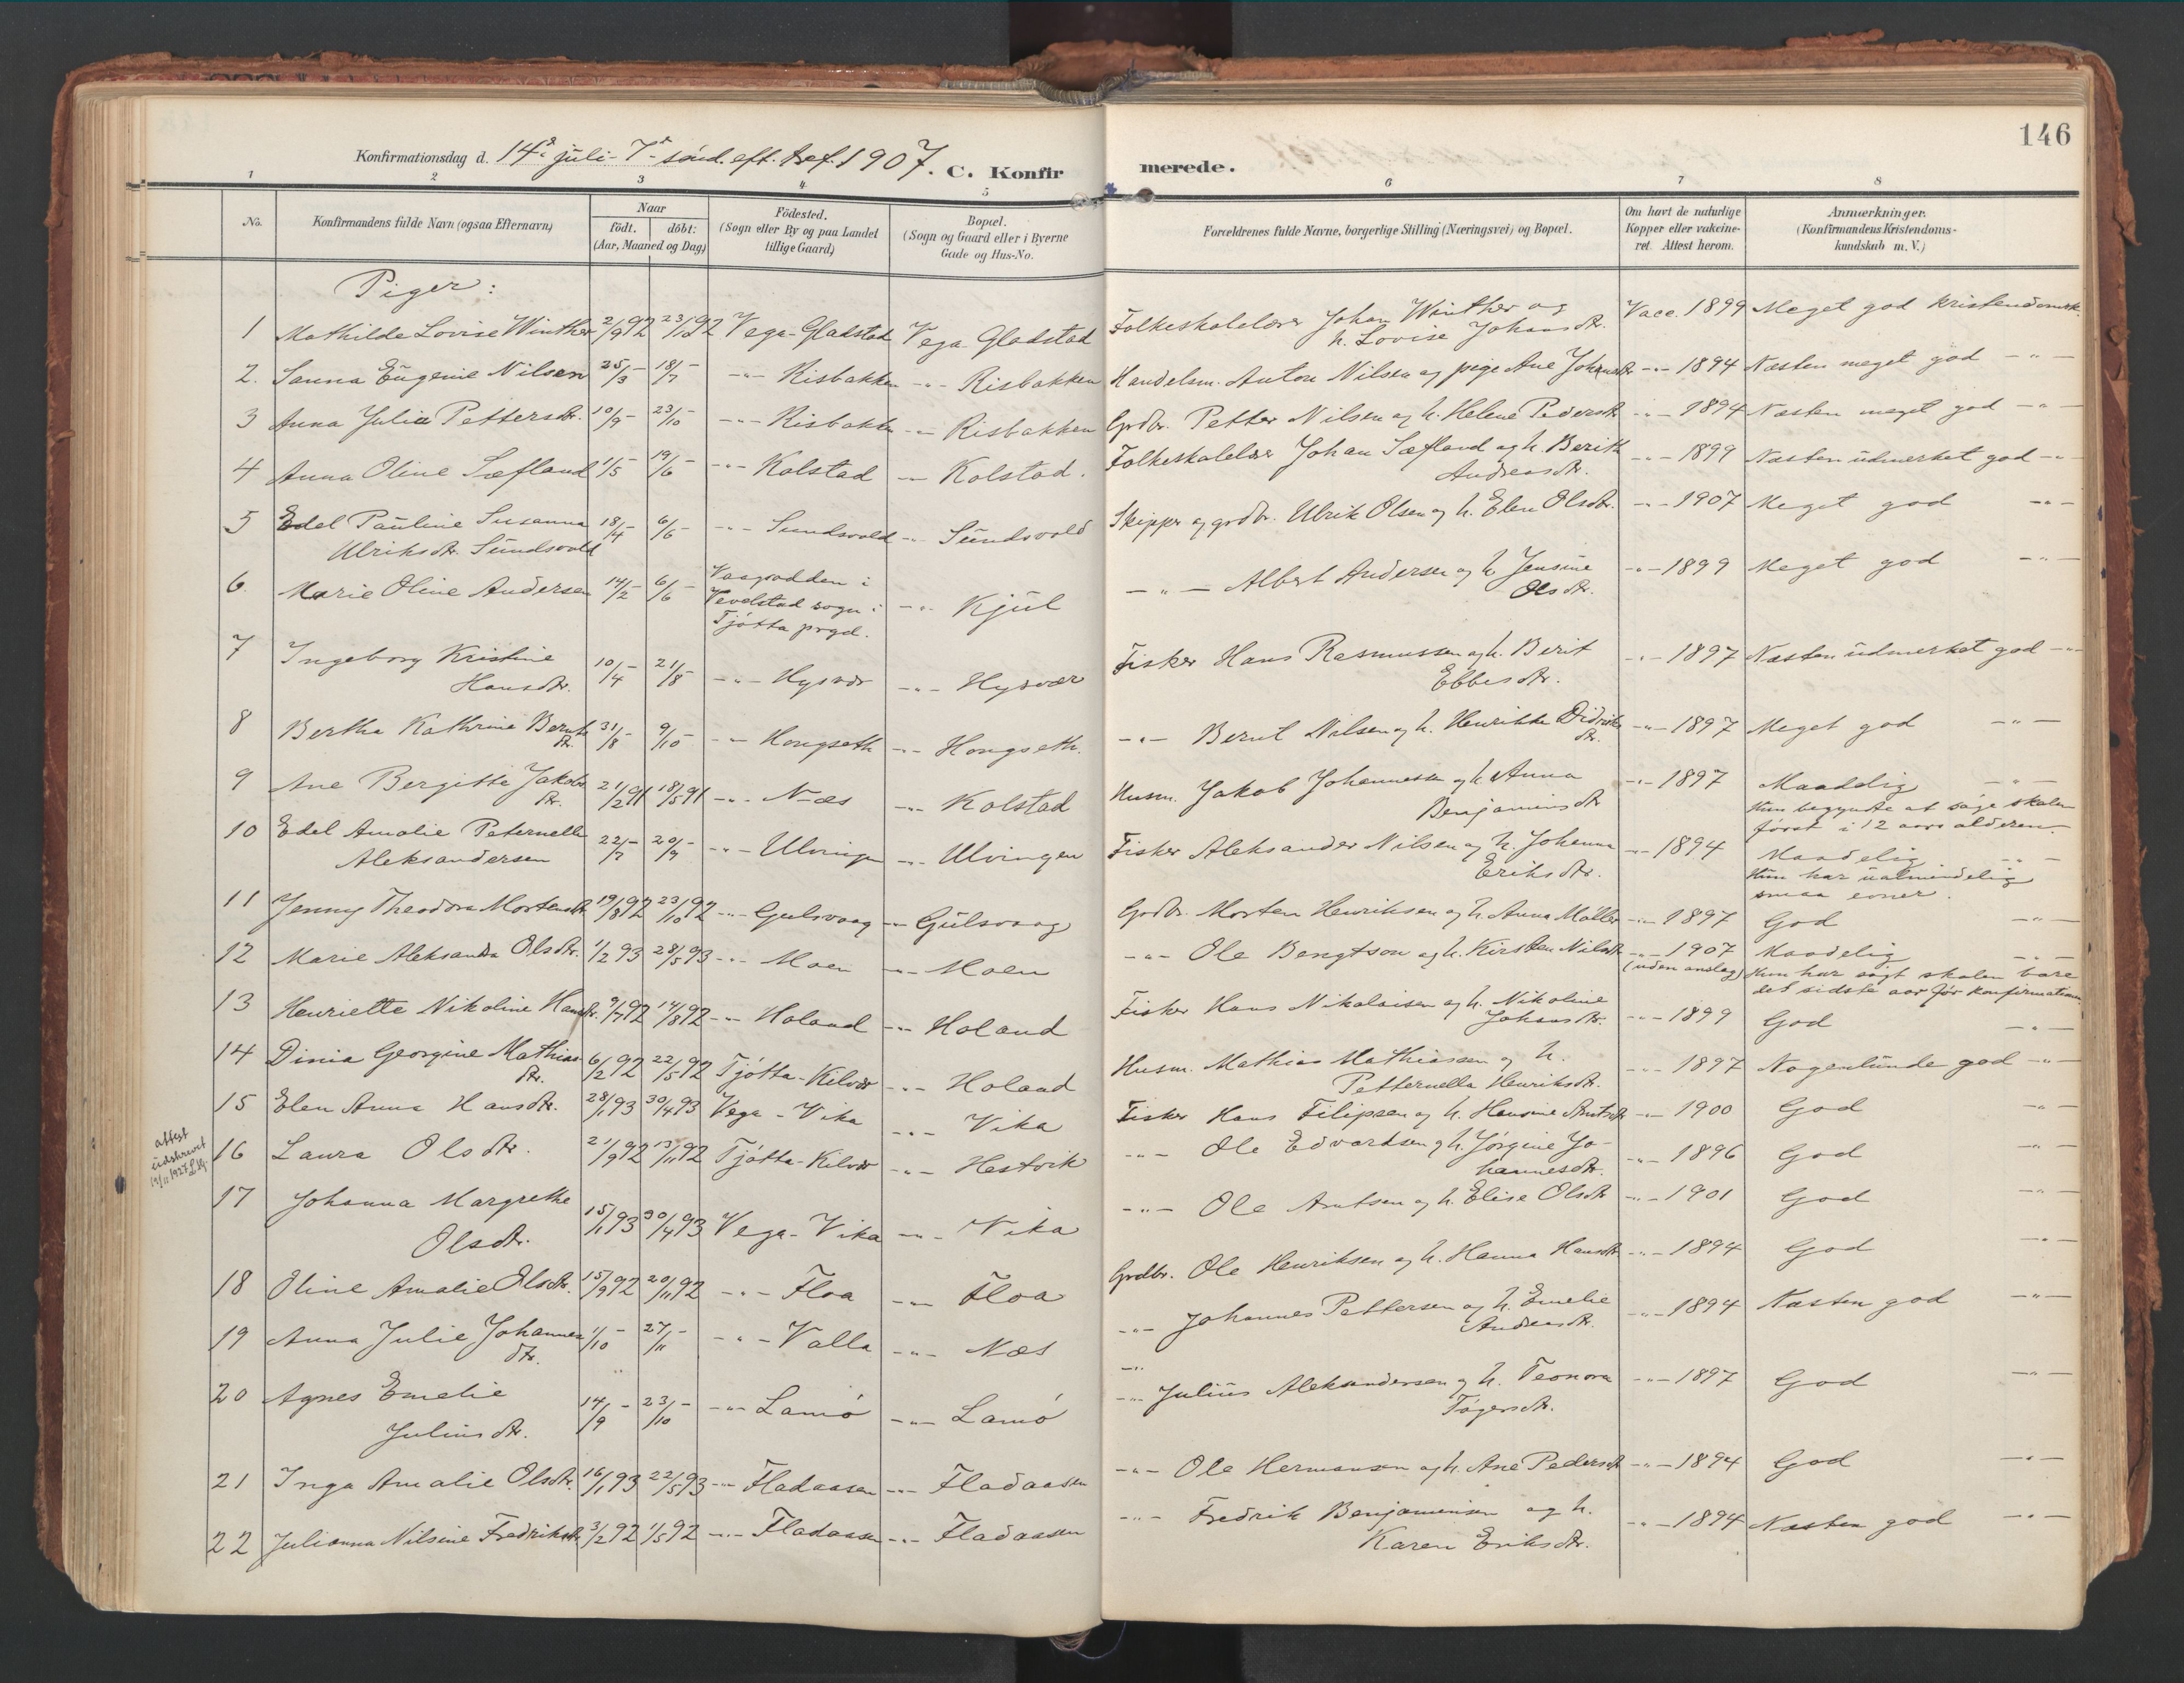 146
Konfirmationsdag d. 14de juli - 7de sönd. eft. tref. 1907. C. Konfirmerede.
1 2 3 4 5 6 7 8
No. Konfirmandens fulde Navn (ogsaa Efternavn) Naar födt. döbt: (Aar, Maaned og Dag) Födested. (Sogn eller By og paa Landet tillige Gaard) Bopæl. (Sogn og Gaard eller i Byerne Gade og Hus-No. Forældrenes fulde Navne, borgerlige Stilling (Næringsvei) og Bopæl. Om havt de naturlige Kopper eller vakcineret. Attest herom. Anmærkninger. (Konfirmandens Kristendomskundskab m. V.)
Piger:
1 Mathilde Lovise Winther 2/9 92 23/10 92 Vega-Gladstad Vega Gladstad Folkeskolelærer Johan Winther og h. Lovise Johansdtr. Vacc. 1899 Meget god kristendomsk.
2. Sanna Eugenie Nilsen 25/3 - 18/7 - -"- Risbakken -"- Risbakken Handelsm. Anton Nilsen og pige Ane Johansdtr -"- 1894 Næsten meget god -"-
3 Anna Julia Pettersdtr. 10/9 - 23/10 - -"- Risbakken -"- Risbakken Grdbr. Petter Nilsen og h. Helene Pedersdtr -"- 1894 Næsten meget god -"-
4 Anna Oline Sæfland 1/5 - 19/6 - -"- Kolstad -"- Kolstad. Folkeskolelærer Johan Sæfland og h. Berith Andreasdtr. -"- 1899 Næsten udmerket god -"-
5 Edel Pauline Susanna Ulriksdtr. Sundsvold 18/4 - 6/6 - -"- Sundsvold -"- Sundsvold Skipper og grdbr. Ulrik Olsen og h. Elen Olsdtr. -"- 1907 Meget god -"-
6. Marie Oline Andersen 14/2 - 6/6 - Vaagsodden i Vevelstad sogn i Tjötta prgd. -"- Kjul -"- Albert Andersen og h. Jensine Olsdtr. -"- 1899 Meget god -"-
7 Ingeborg Kristine Hansdtr. 10/4 - 21/8 - -"- Hysvær -"- Hysvær Fisker Hans Rasmussen og h. Berit Ebbesdtr. -"- 1897 Næsten udmerket god -"-
8 Bertha Kathrine Berntsdtr. 31/8 - 9/10 - -"- Hongseth -"- Hongseth. -"- Bernt Nilsen og h. Henrikke Didriksdtr. -"- 1897 Meget god -"-
9 Ane Bergitte Jakobsdtr. 21/2 91 18/5 91 -"- Næs -"- Kolstad Husm. Jakob Johannessen og h. Anna Benjaminsdtr -"- 1897 Maadelig -"- Hun begyndte at søge skolen først i 12 aars alderen.
10 Edel Amalie Peternelle Aleksandersen 22/7 - 20/9 - -"- Ulvingen -"- Ulvingen Fisker Aleksander Nilsen og h. Johanna Eriksdtr. -"- 1894 Maadelig -"- Hun har ualmindelig smaa evner.
11 Jenny Theodora Mortensdtr 19/8 92 23/10 92 -"- Gulsvaag -"- Gulsvaag Grdbr. Morten Henriksen og h. Anna Möller -"- 1897 God -"-
12 Marie Aleksandra Olsdtr. 1/2 93 28/5 93 -"- Moen -"- Moen -"- Ole Bengtson og h. Kirsten Nilsdtr -"- 1907 (uden anslag) Maadelig -"- Hun har søgt skolen bare det sidste aar før konfirmationen
13 Henriette Nikoline Hansdtr. 9/7 92 14/8 92 -"- Holand -"- Holand Fisker Hans Nikolaisen og h. Nikoline Johansdtr. -"- 1899 God -"-
14 Dinia Georgine Mathiasdtr. 6/2 92 22/5 92 Tjötta-Kilvær -"- Holand Husm. Mathias Mathiassen og h. Petternella Henriksdtr. -"- 1897 Nogenlunde god -"-
15 Elen Anna Hansdtr. 28/1 93 30/4 93 Vega - Vika -"- Vika Fisker Hans Filipsen og h. Hansine Arntsdtr -"- 1900 God -"-
attest udskrevet 19/11 1927
16 Laura Olsdtr. 21/9 92 13/11 92 Tjötta-Kilvær -"- Hestvik -"- Ole Edvardsen og h. Jørgine Johannesdtr. -"- 1896 God -"-
17 Johanna Margrethe Olsdtr. 15/1 93 30/4 93 Vega-Vika -"- Vika -"- Ole Arntsen og h. Elise Olsdtr -"- 1901 God -"-
18 Oline Amalie Olsdtr. 15/9 92 20/11 92 -"- Floa -"- Floa Grdbr. Ole Henriksen og h. Hanna Hansdtr -"- 1894 God -"-
19 Anna Julie Johannesdtr. 1/10 - 27/11 - -"- Valla -"- Næs -"- Johannes Pettersen og h. Emelie Andreasdtr. -"- 1894 Næsten god -"-
20 Agnes Emelie Juliusdtr. 14/9 - 23/10 - -"- Lamö -"- Lamö -"- Julius Aleksandersen og h. Teonora Tøgersdtr. -"- 1897 God -"-
21 Inga Amalie Olsdtr. 16/1 93 22/5 93 -"- Fladaasen -"- Fladaasen -"- Ole Hermansen og h. Ane Pedersdtr -"- 1894 God -"-
22 Julianna Nilsine Fredriksdtr. 3/2 92 1/5 92 -"- Fladaasen -"- Fladaasen -"- Fredrik Benjaminsen og h. Karen Eriksdtr. -"- 1894 Næsten god -"-